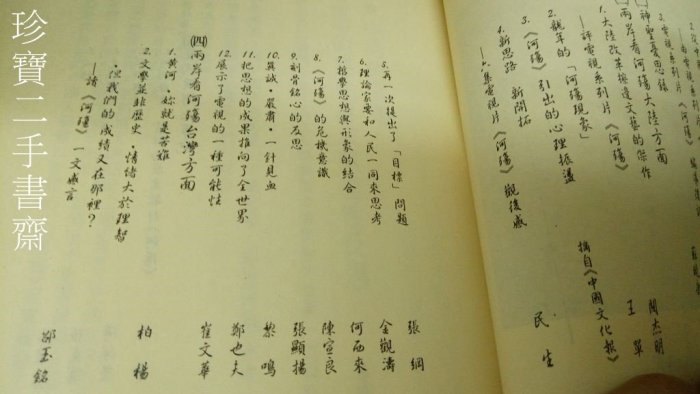 神聖憂思錄
兩岸看河殤大陸方面
1.大陸改革極邊文藝的傑作
—評電視系列片《河殤》
2.龍年的「河殤現象」
3.《河殤》引出的心理振盪
4.新思路 新開拓
—六集電視片《河殤》觀後感
閻杰明
王單
摘自《中國文化報》
民生
5.再一次提出了「目標」問題 張綱
6.理論家要和人民一同來思考 金觀濤
7.哲學思想與形象的結合 何西來
8.《河殤》的危機意識 陳宣良
9.刻骨銘心的反思 張顯揚
10.真誠·嚴肅·一針見血 黎鳴
11.把思想的成果推向了全世界 鄭也夫
12.展示了電視的一種可能性 崔文華
㈣兩岸看河殤台灣方面
1.黃河·妳就是苦難 柏楊
2.文學並非歷史·情緒大於理智
·但我們的成績又在那裡？
—讀《河殤》一文感言 邵玉銘
珍寶二手書齋